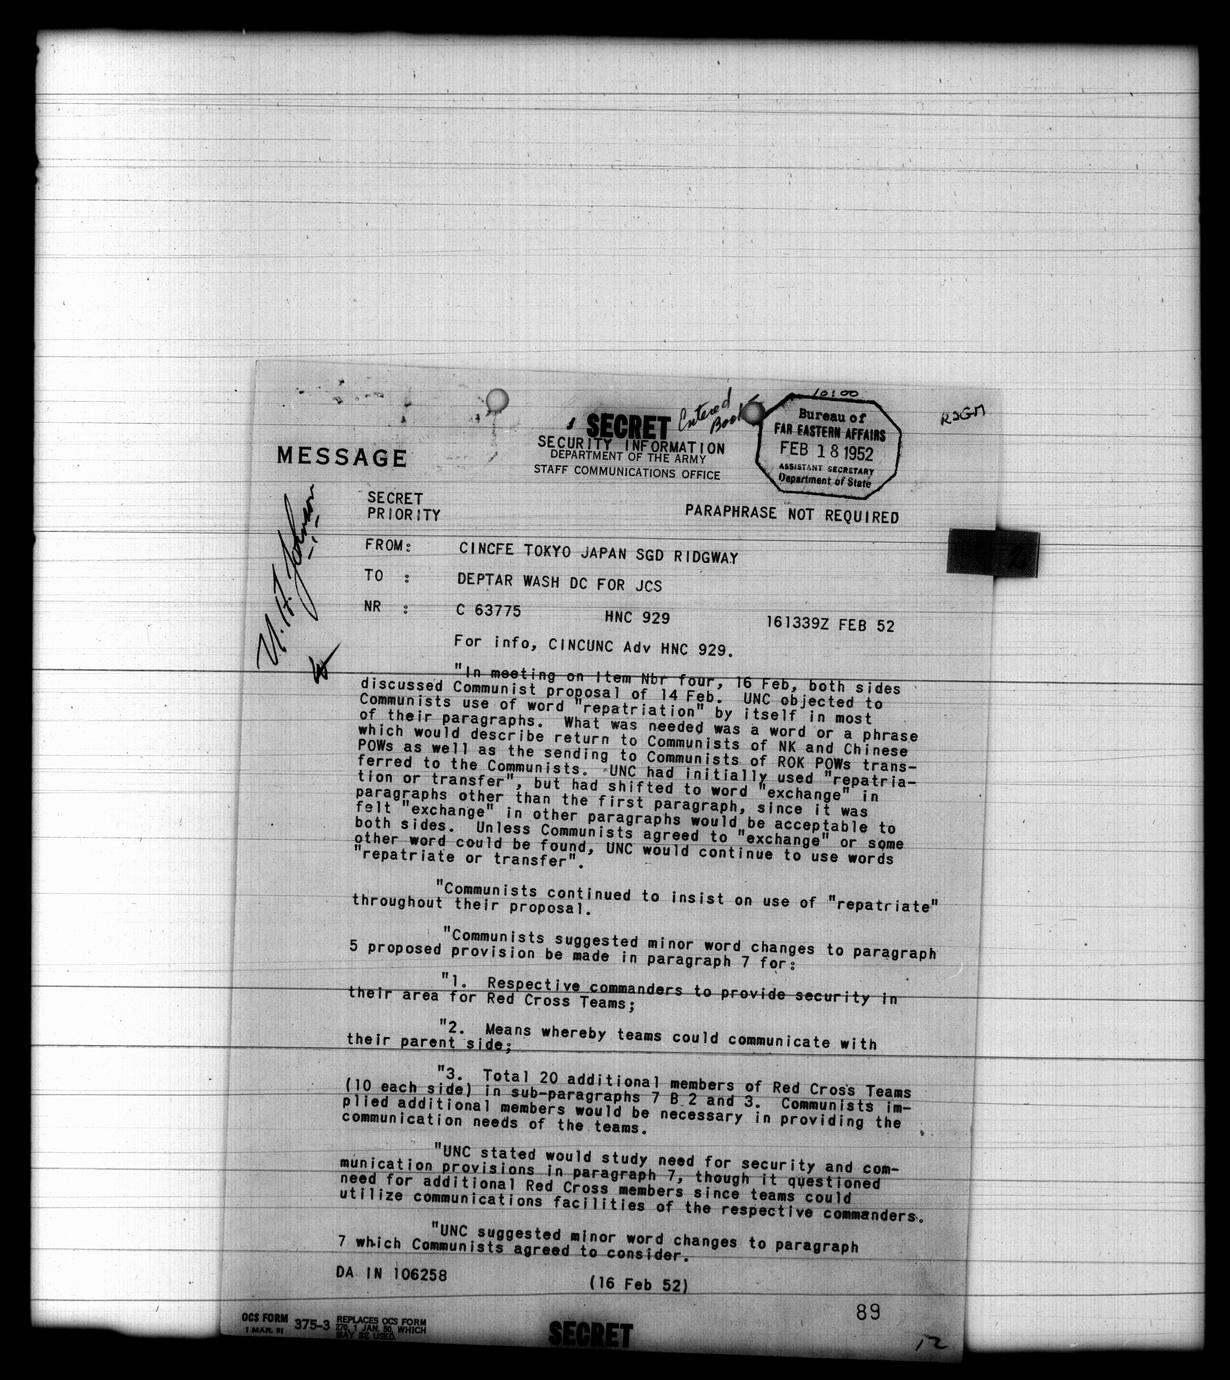 10:00
SECRET
Entered
Book
RJGM
Bureau of
FAR EASTERN AFFAIRS
FEB 18 1952
ASSISTANT SECRETARY
Department of State
SECURITY INFORMATION
DEPARTMENT OF THE ARMY
STAFF COMMUNICATIONS OFFICE
MESSAGE
U. A. Johnson
SECRET
PRIORITY
PARAPHRASE NOT REQUIRED
FROM: CINCFE TOKYO JAPAN SGD RIDGWAY
2
TO : DEPTAR WASH DC FOR JCS
NR : C 63775 HNC 929 161339Z FEB 52
For info, CINCUNC Adv HNC 929.
"In meeting on Item Nbr four, 16 Feb, both sides
discussed Communist proposal of 14 Feb. UNC objected to
Communists use of word "repatriation" by itself in most
of their paragraphs. What was needed was a word or a phrase
which would describe return to Communists of NK and Chinese
POWs as well as the sending to Communists of ROK POWs trans-
ferred to the Communists. UNC had initially used "repatria-
tion or transfer", but had shifted to word "exchange" in
paragraphs other than the first paragraph, since it was
felt "exchange" in other paragraphs would be acceptable to
both sides. Unless Communists agreed to "exchange" or some
other word could be found, UNC would continue to use words
"repatriate or transfer".
"Communists continued to insist on use of "repatriate"
throughout their proposal.
"Communists suggested minor word changes to paragraph
5 proposed provision be made in paragraph 7 for:
"1. Respective commanders to provide security in
their area for Red Cross Teams;
"2. Means whereby teams could communicate with
their parent side;
"3. Total 20 additional members of Red Cross Teams
(10 each side) in sub-paragraphs 7 B 2 and 3. Communists im-
plied additional members would be necessary in providing the
communication needs of the teams.
"UNC stated would study need for security and com-
munication provisions in paragraph 7, though it questioned
need for additional Red Cross members since teams could
utilize communications facilities of the respective commanders.
"UNC suggested minor word changes to paragraph
7 which Communists agreed to consider.
DA IN 106258 (16 Feb 52)
89
OCS FORM
1 MAR. 51
375-3
REPLACES OCS FORM
270, 1 JAN. 50, WHICH
MAY BE USED.
SECRET
12